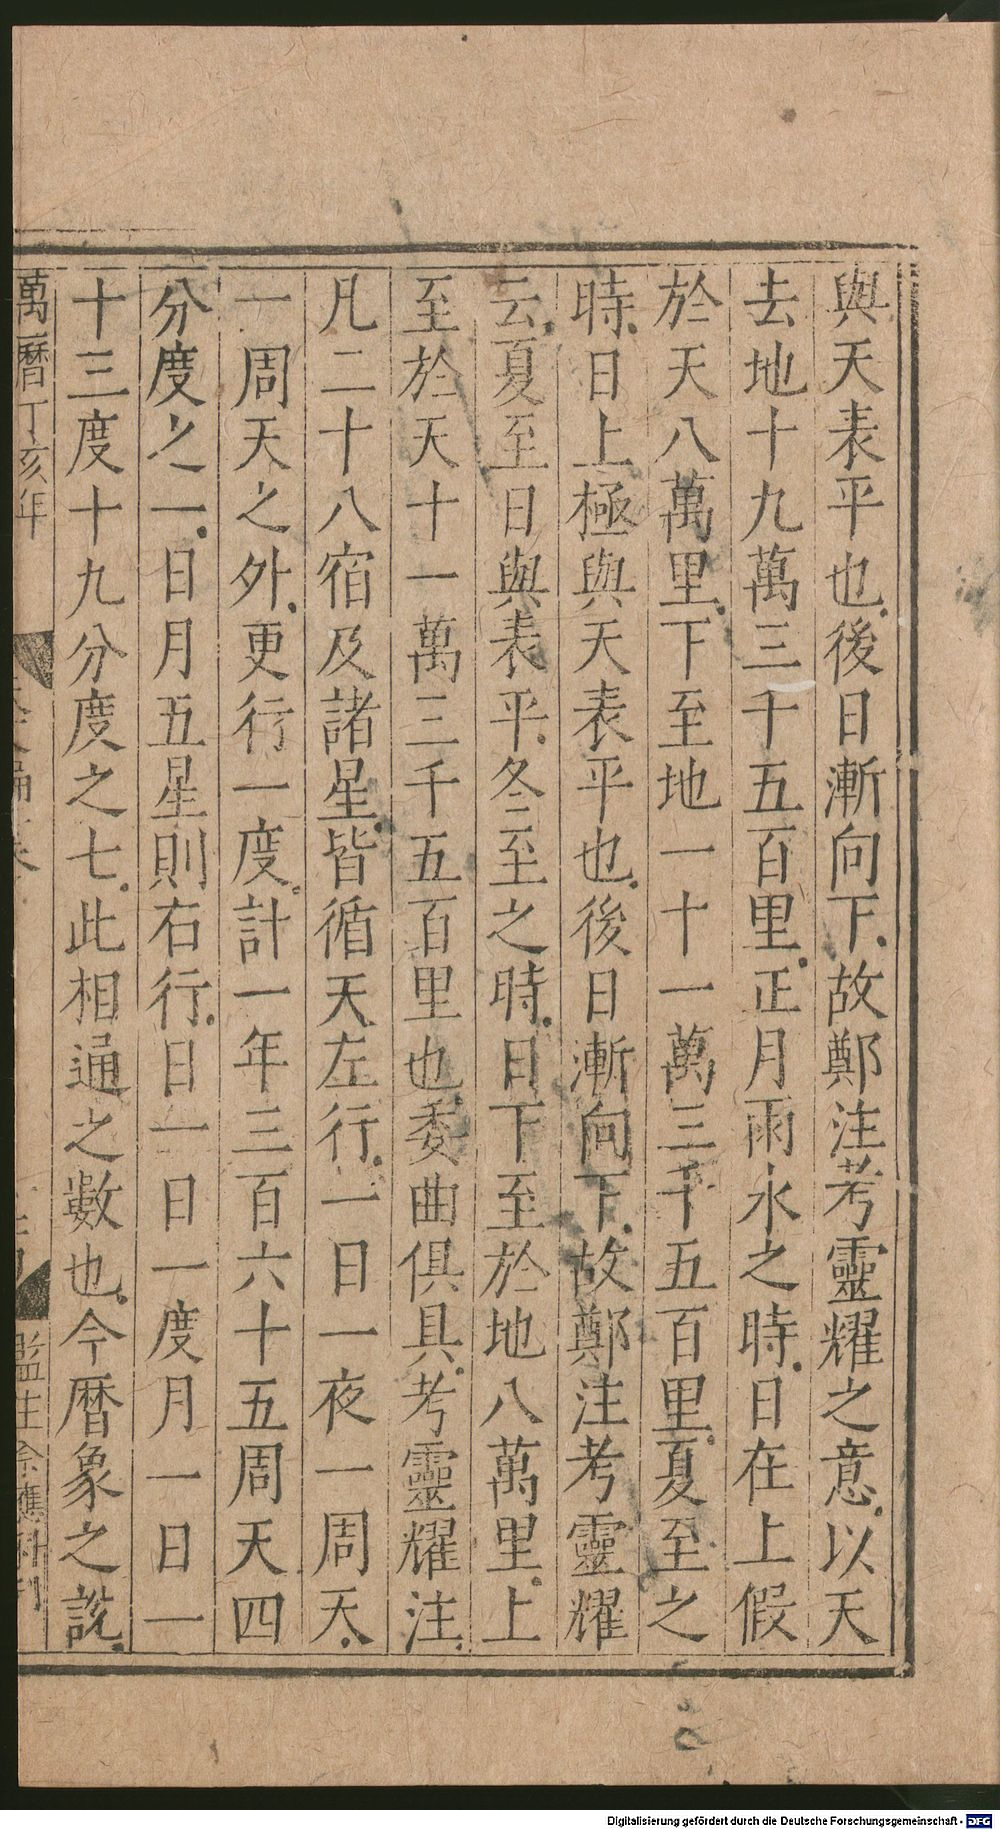 與天表平也後日漸向下故鄭注考靈耀之意以天
去地十九萬三千五百里正月雨水之時日在上假
於天八萬里下至地一十一萬三千五百里夏至之
時日上極與天表平也後日漸向下故鄭注考靈耀
云夏至日與表平冬至之時日下至於地八萬里上
至於天十一萬三千五百里也委曲俱具考靈耀注
凡二十八宿及諸星皆循天左行一日一夜一周天
一周天之外更行一度計一年三百六十五周天四
分度之一日月五星則右行日一日一度月一日一
十三度十九分度之七此相通之數也今曆象之說
萬曆丁亥年
監生
應科刊
Digitalisierung gefördert durch die Deutsche Forschungsgemeinschaft - DFG